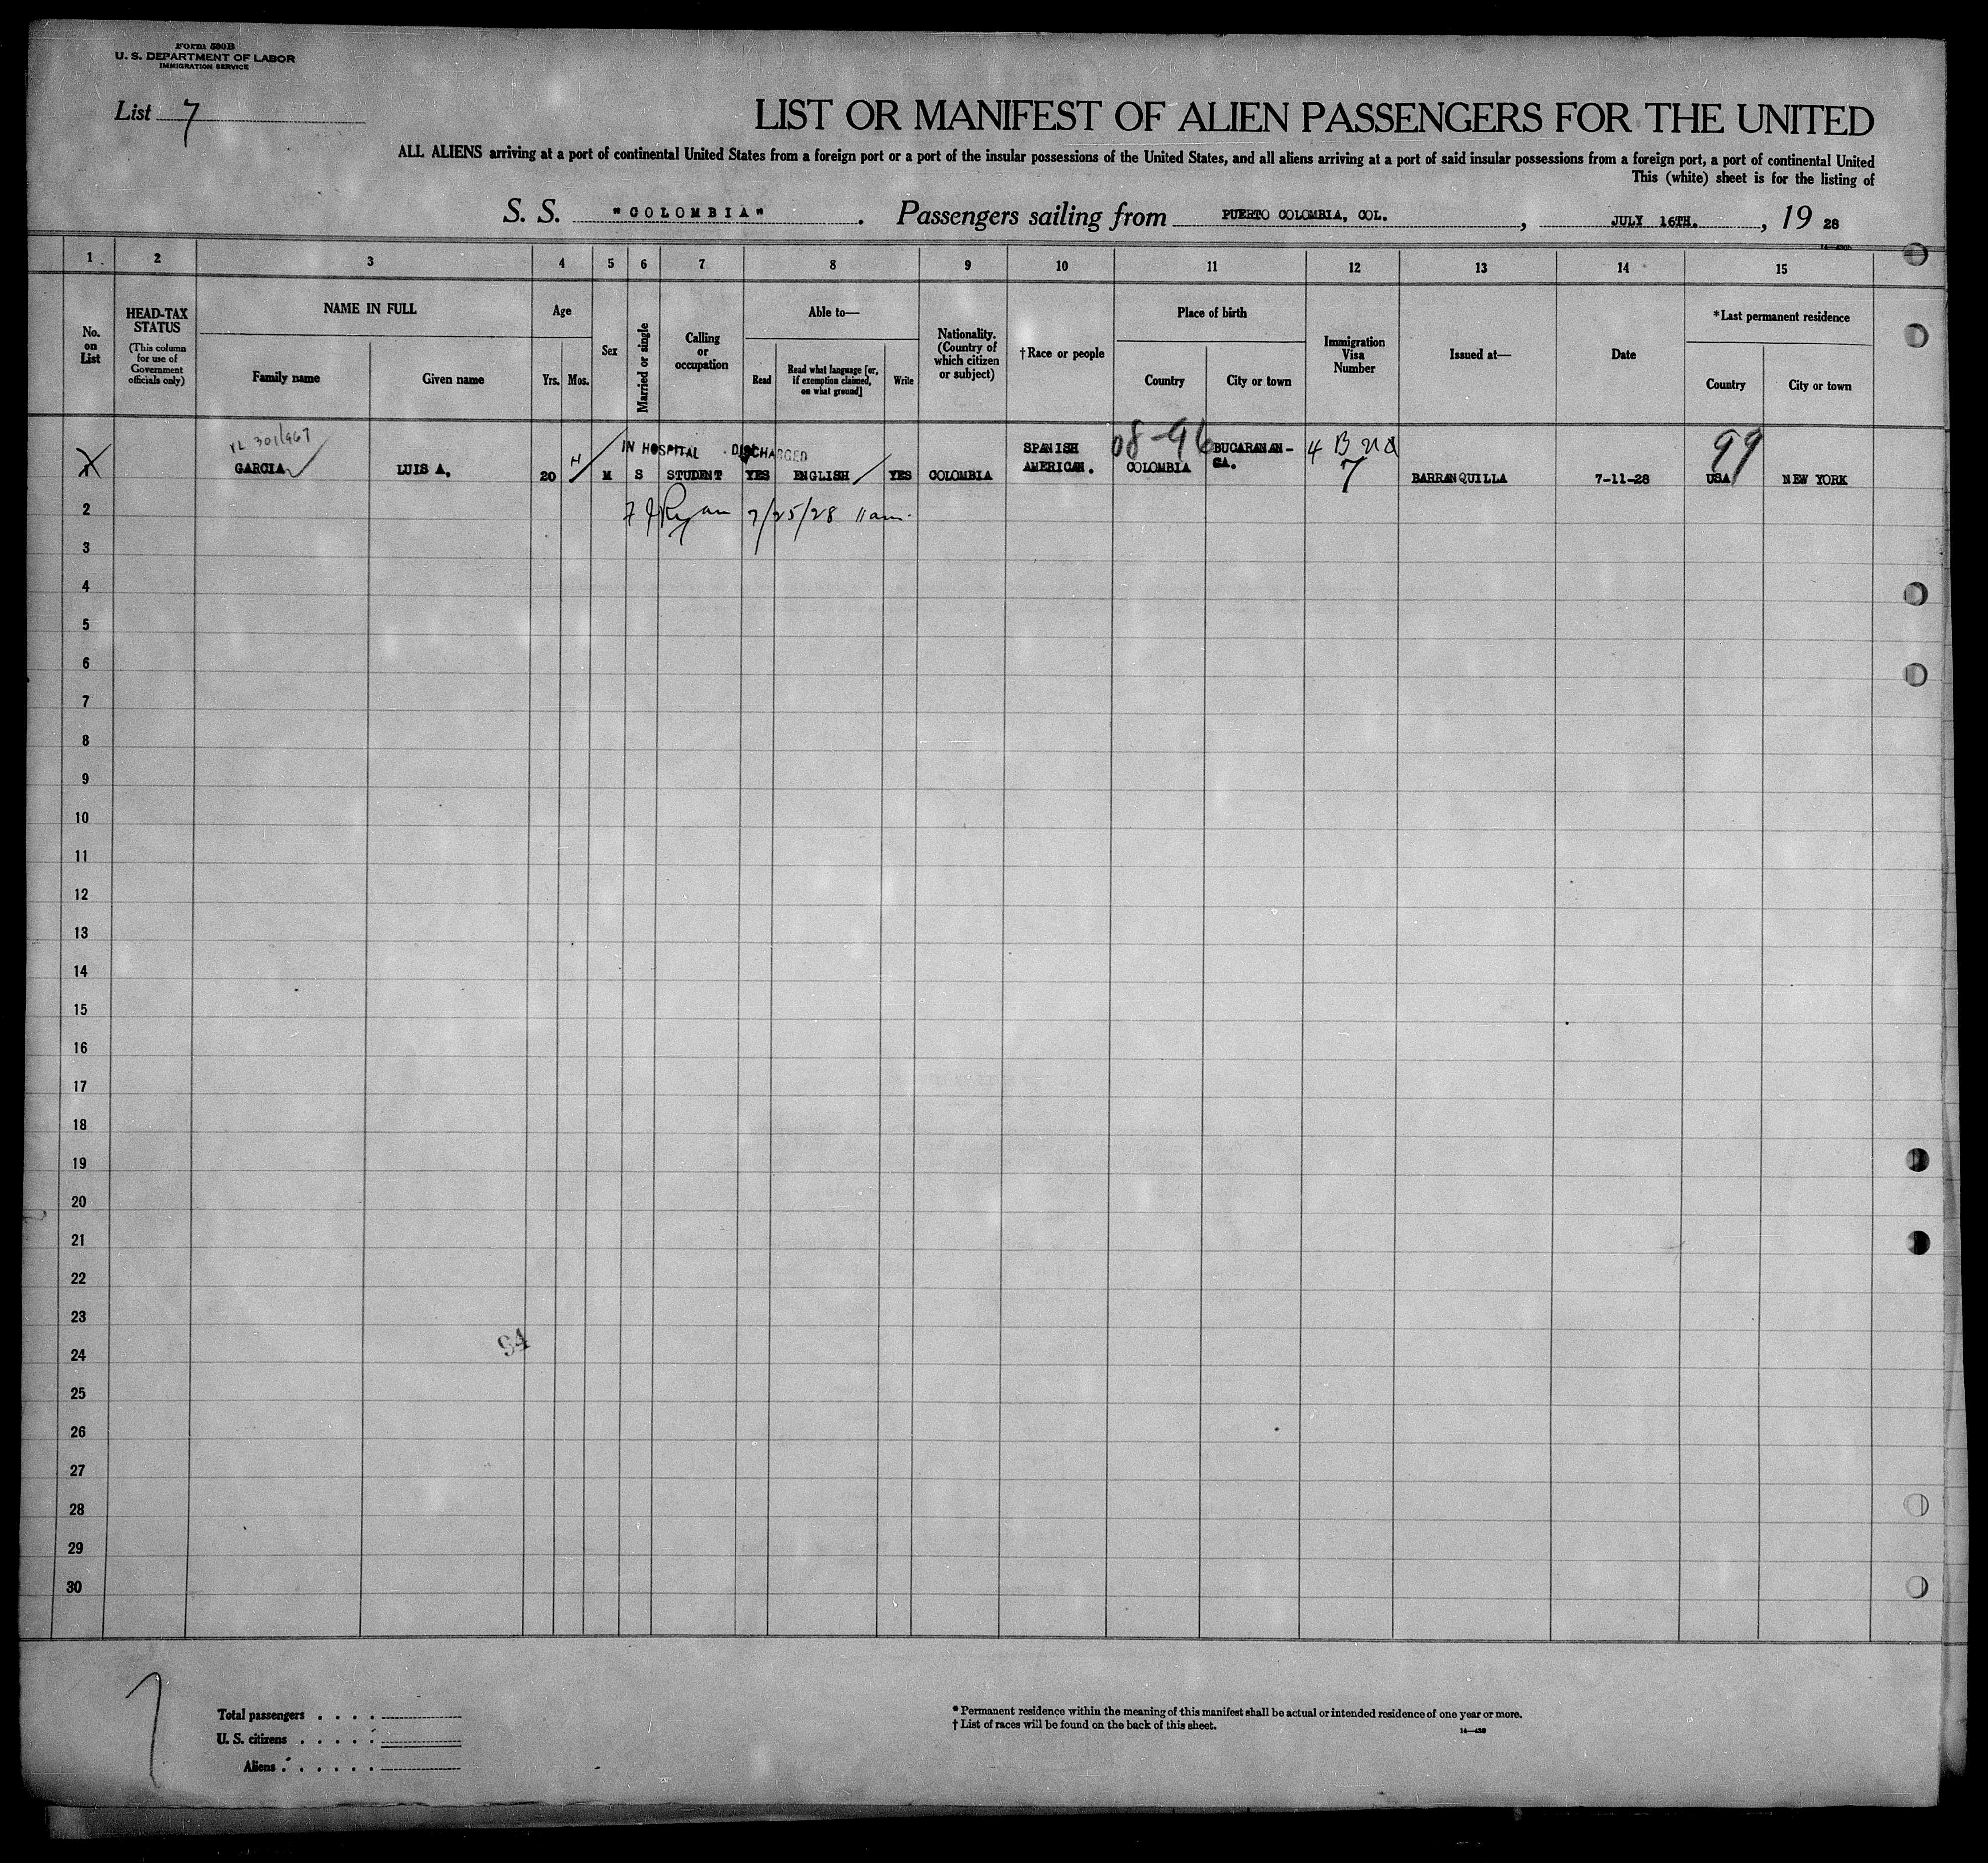 Form 500B
U. S. DEPARTMENT OF LABOR
IMMIGRATION SERVICE
List 7
LIST OR MANIFEST OF ALIEN PASSENGERS FOR THE UNITED
ALL ALIENS arriving at a port of continental United States from a foreign port or a port of the insular possessions of the United States, and all aliens arriving at a port of said insular possessions from a foreign port, a port of continental United
This (white) sheet is for the listing of
S. S. "COLOMBIA" . Passengers sailing from PUERTO COLOMBIA, COL. , JULY 16TH. , 19 28
1 2 3 4 5 6 7 8 9 10 11 12 13 14 15
No. on List
HEAD-TAX STATUS
(This column for use of Government officials only)
NAME IN FULL
Family name
Given name
Age
Yrs.
Mos.
Sex
Married or single
Calling or occupation
Able to—
Read
Read what language [or, if exemption claimed, on what ground]
Write
Nationality. (Country of which citizen or subject)
†Race or people
Place of birth
Country
City or town
Immigration Visa Number
Issued at—
Date
*Last permanent residence
Country
City or town
301/967
IN HOSPITAL DISCHARGED
08-96
4 B
99
GARCIA LUIS A, 20 H M S STUDENT YES ENGLISH YES COLOMBIA SPANISH AMERICAN. COLOMBIA BUCARANAN-GA. 7 BARRANQUILLA 7-11-28 USA NEW YORK
2 F J Ryan 7/25/28 11 am.
3
4
5
6
7
8
9
10
11
12
13
14
15
16
17
18
19
20
21
22
23
94
24
25
26
27
28
29
30
7
Total passengers . . . .
U. S. citizens . . . . .
Aliens . . . . . .
* Permanent residence within the meaning of this manifest shall be actual or intended residence of one year or more.
† List of races will be found on the back of this sheet.
14—430